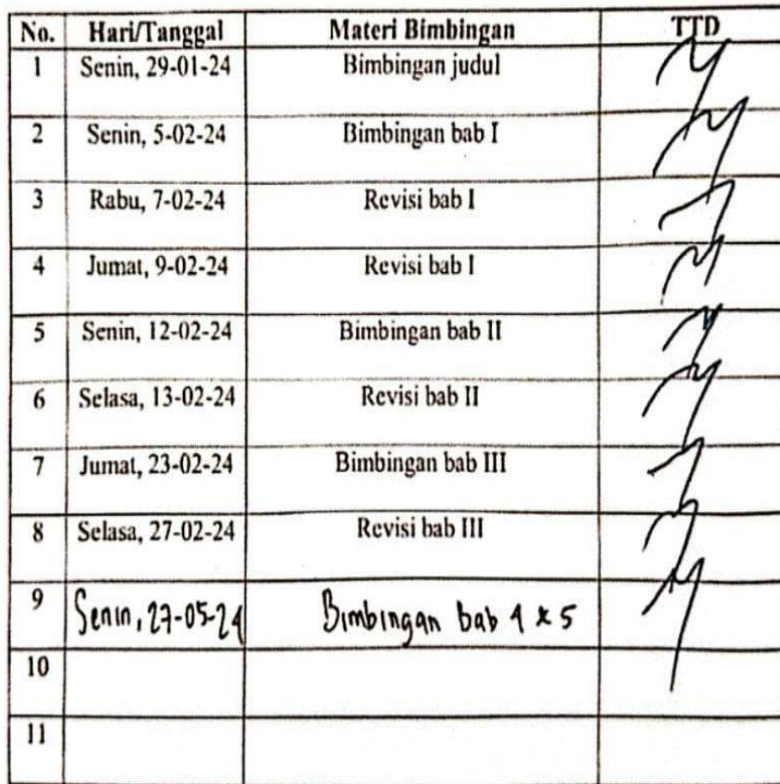 No. Hari/Tanggal Materi Bimbingan TTD
1 Senin, 29-01-24 Bimbingan judul
2 Senin, 5-02-24 Bimbingan bab I
3 Rabu, 7-02-24 Revisi bab I
4 Jumat, 9-02-24 Revisi bab I
5 Senin, 12-02-24 Bimbingan bab II
6 Selasa, 13-02-24 Revisi bab II
7 Jumat, 23-02-24 Bimbingan bab III
8 Selasa, 27-02-24 Revisi bab III
9 Senin, 27-05-24 Bimbingan bab 4 & 5
10
11